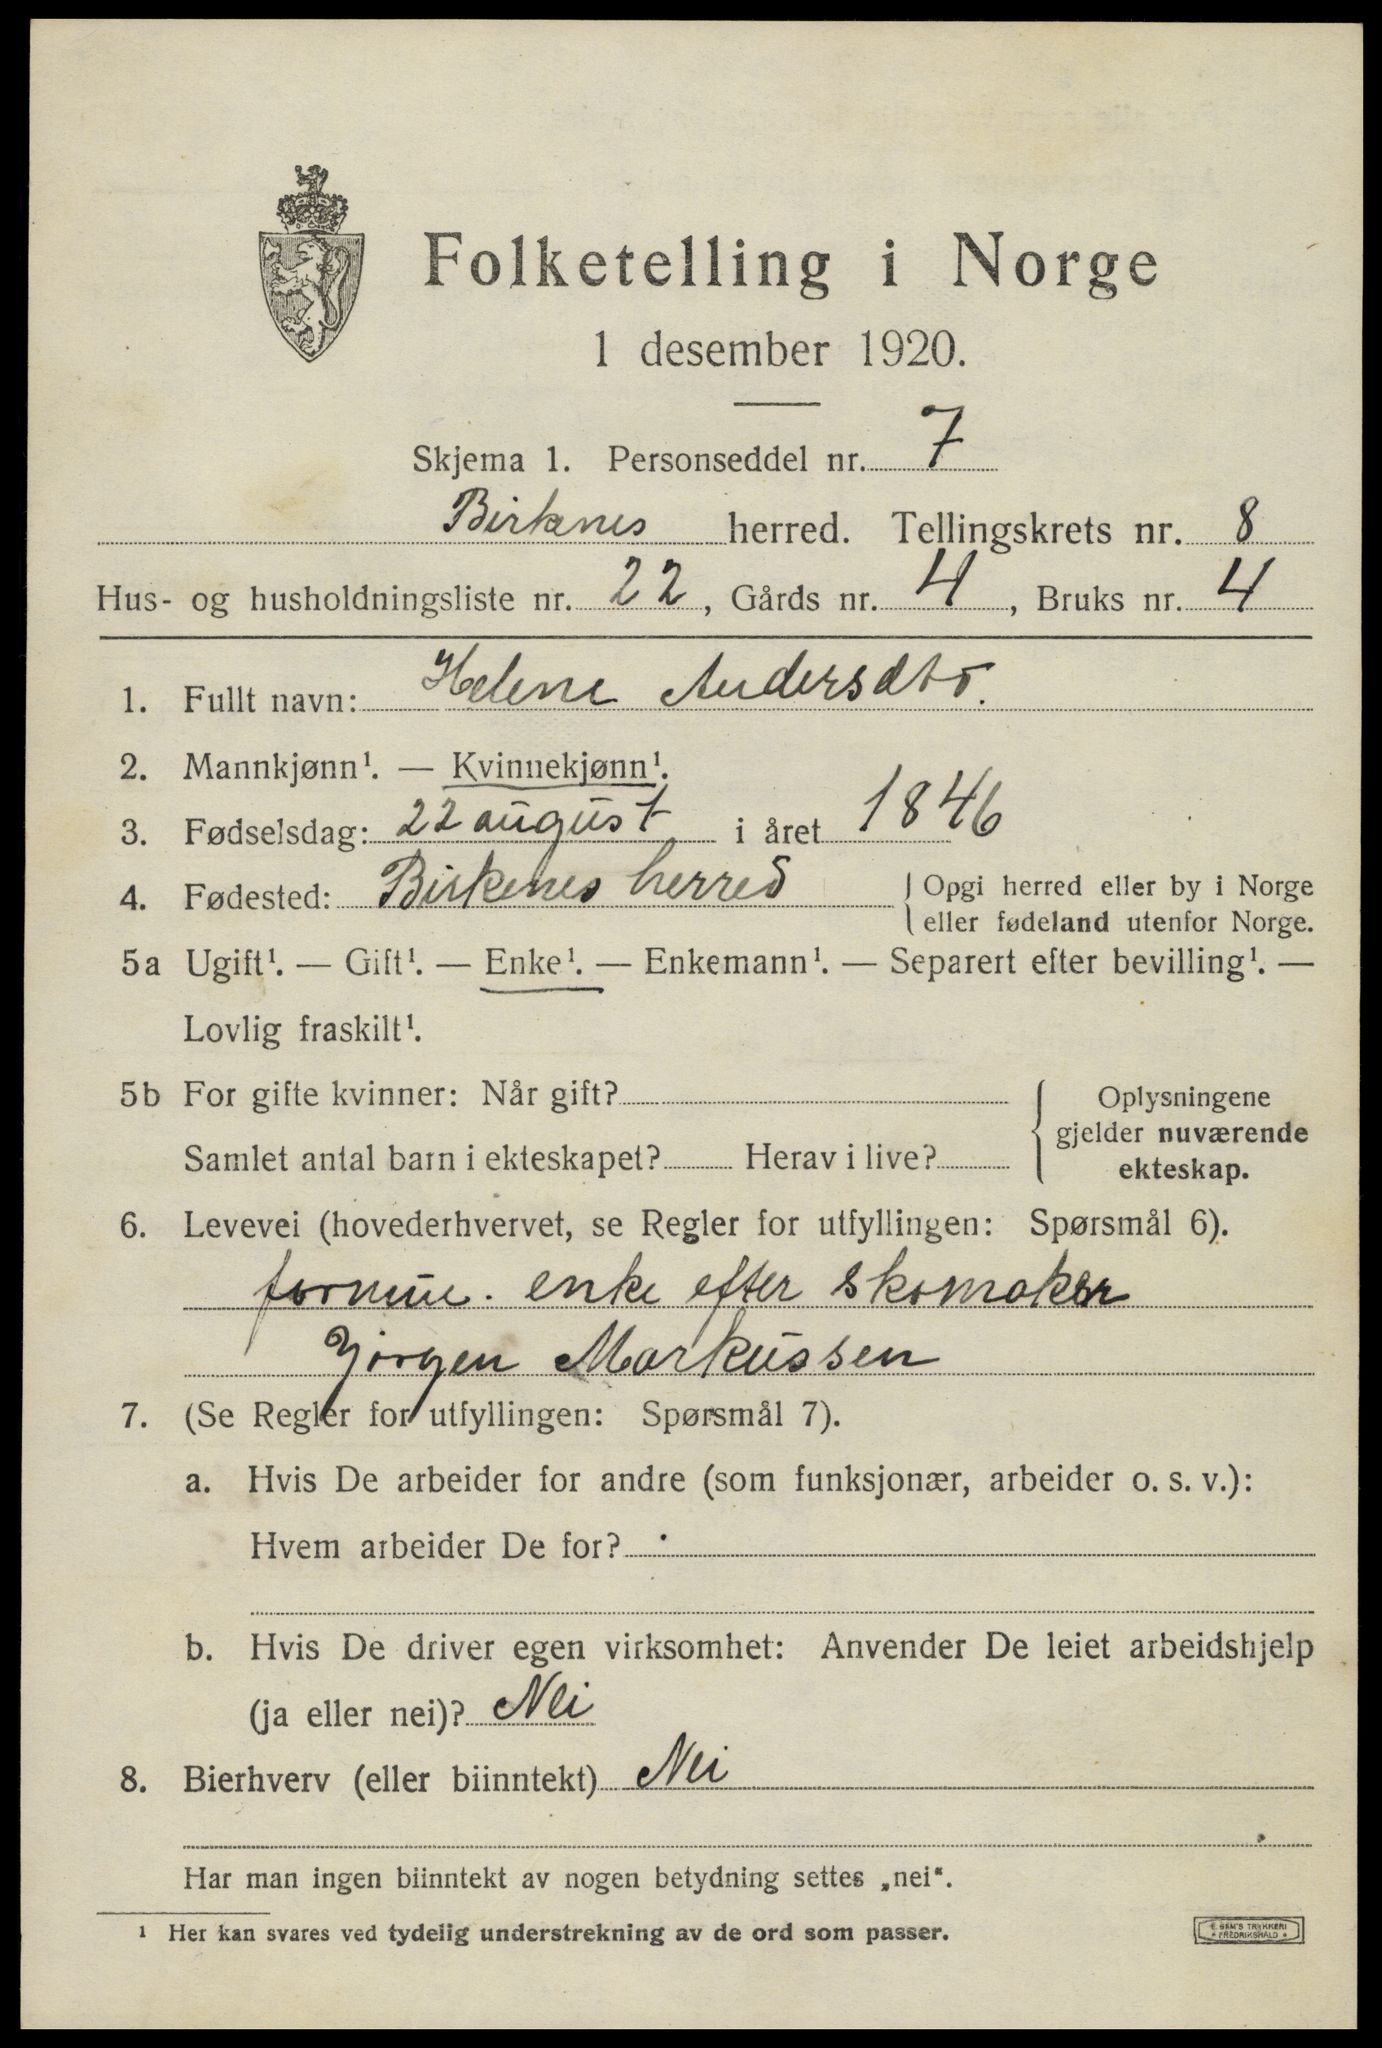 Folketelling i Norge
1 desember 1920.
Skjema 1. Personseddel nr. 7
Birknes herred. Tellingskrets nr. 8
Hus- og husholdningsliste nr. 22, Gårds nr. 4, Bruks nr. 4
1. Fullt navn: Helene Andersdtr.
2. Mannkjønn¹. — Kvinnekjønn¹.
3. Fødselsdag: 22 august i året 1846
4. Fødested: Birkenes herred { Opgi herred eller by i Norge
eller fødeland utenfor Norge.
5a Ugift¹. — Gift¹. — Enke¹. — Enkemann¹. — Separert efter bevilling¹. —
Lovlig fraskilt¹.
5b For gifte kvinner: Når gift?
Samlet antal barn i ekteskapet? Herav i live?
{ Oplysningene
gjelder nuværende
ekteskap.
6. Levevei (hovederhvervet, se Regler for utfyllingen: Spørsmål 6).
enke efter skomaker
Jörgen Markussen
7. (Se Regler for utfyllingen: Spørsmål 7).
a. Hvis De arbeider for andre (som funksjonær, arbeider o. s. v.):
Hvem arbeider De for?
b. Hvis De driver egen virksomhet: Anvender De leiet arbeidshjelp
(ja eller nei)? Nei
8. Bierhverv (eller biinntekt) Nei
Har man ingen biinntekt av nogen betydning settes „nei“.
¹ Her kan svares ved tydelig understrekning av de ord som passer.